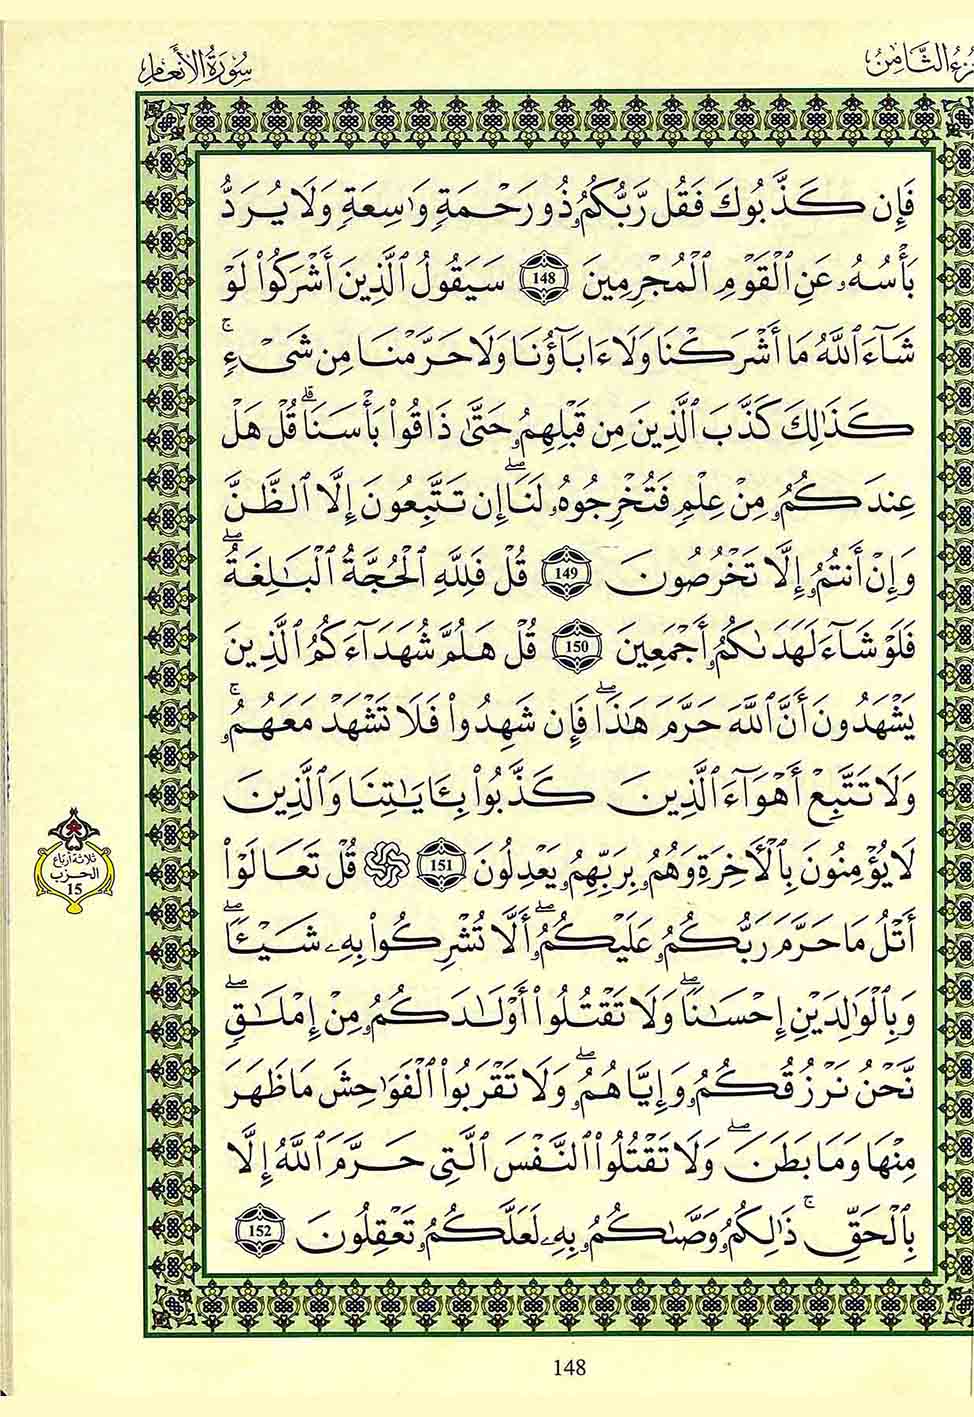 سُورَةُ الأَنْعَامِ
الثَّامِنُ
فَإِن كَذَّبُوكَ فَقُل رَّبُّكُمُۥ ذُو رَحْمَةٍ وَٰسِعَةٍ وَلَا يُرَدُّ
بَأْسُهُۥ عَنِ اِ۬لْقَوْمِ اِ۬لْمُجْرِمِينَ 148 سَيَقُولُ اُ۬لَّذِينَ أَشْرَكُواْ لَوْ
شَآءَ اَ۬للَّهُ مَا أَشْرَكْنَا وَلَا ءَابَآؤُنَا وَلَا حَرَّمْنَا مِن شَےْءٍۚ
كَذَٰلِكَ كَذَّبَ اَ۬لَّذِينَ مِن قَبْلِهِمُۥ حَتَّىٰ ذَاقُواْ بَأْسَنَاۗ قُلْ هَلْ
عِندَكُمُۥ مِنْ عِلْمٍ فَتُخْرِجُوهُۥ لَنَاۖ إِن تَتَّبِعُونَ إِلَّا اَ۬لظَّنَّ
وَإِنْ أَنتُمُۥ إِلَّا تَخْرُصُونَ 149 قُلْ فَلِلَّهِ اِ۬لْحُجَّةُ اُ۬لْبَٰلِغَةُۖ
فَلَوْ شَآءَ لَهَدَىٰكُمُۥ أَجْمَعِينَ 150 قُلْ هَلُمَّ شُهَدَآءَكُمُ اُ۬لَّذِينَ
يَشْهَدُونَ أَنَّ اَ۬للَّهَ حَرَّمَ هَٰذَاۖ فَإِن شَهِدُواْ فَلَا تَشْهَدْ مَعَهُمُۥۚ
وَلَا تَتَّبِعْ أَهْوَآءَ اَ۬لَّذِينَ كَذَّبُواْ بِـَٔايَٰتِنَا وَالَّذِينَ
لَا يُؤْمِنُونَ بِالْأٓخِرَةِ وَهُمُۥ بِرَبِّهِمُۥ يَعْدِلُونَ 151 ۞ قُلْ تَعَالَوْاْ
أَتْلُ مَا حَرَّمَ رَبُّكُمُۥ عَلَيْكُمُۥۖ أَلَّا تُشْرِكُواْ بِهِۦ شَيْـٔاًۖ
وَبِالْوَٰلِدَيْنِ إِحْسَٰناًۖ وَلَا تَقْتُلُواْ أَوْلَٰدَكُمُۥ مِنْ إِمْلَٰقٍۖ
نَّحْنُ نَرْزُقُكُمُۥ وَإِيَّاهُمُۥۖ وَلَا تَقْرَبُواْ اُ۬لْفَوَٰحِشَ مَا ظَهَرَ
مِنْهَا وَمَا بَطَنَۖ وَلَا تَقْتُلُواْ اُ۬لنَّفْسَ اَ۬لَّتِى حَرَّمَ اَ۬للَّهُ إِلَّا
بِالْحَقِّۚ ذَٰلِكُمُۥ وَصَّىٰكُمُۥ بِهِۦ لَعَلَّكُمُۥ تَعْقِلُونَ 152
ثلاثة أرباع
الحزب
15
148